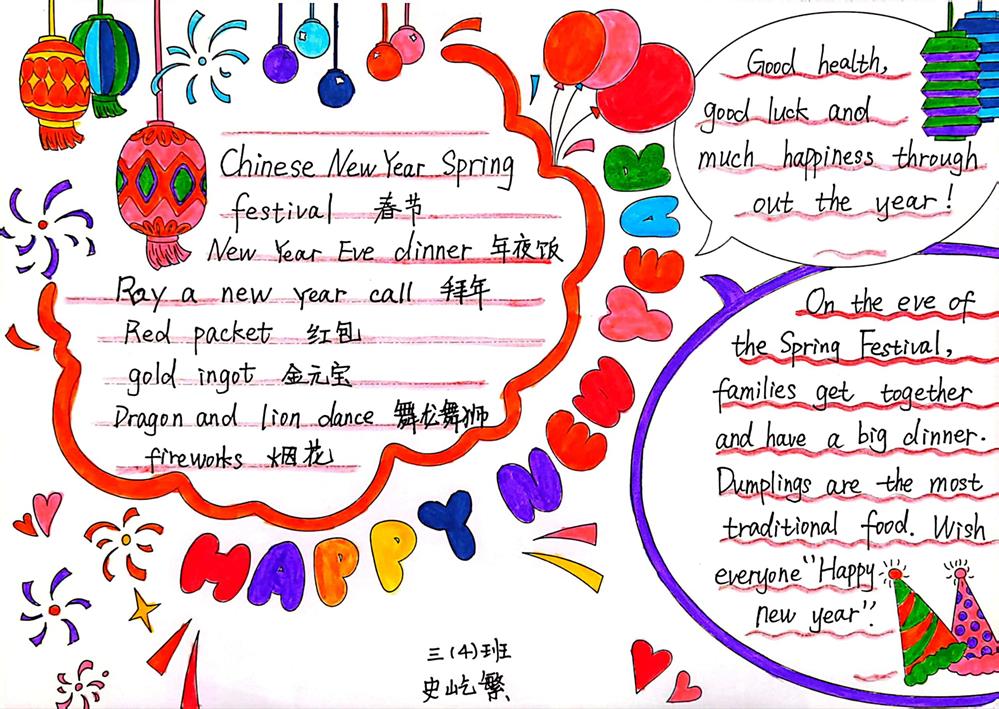 Chinese New Year Spring
festival 春节
New Year Eve dinner 年夜饭
Pay a new year call 拜年
Red packet 红包
gold ingot 金元宝
Dragon and lion dance 舞龙舞狮
fireworks 烟花
HAPPY NEW YEAR
Good health,
good luck and
much happiness through
out the year!
On the eve of
the Spring Festival,
families get together
and have a big dinner.
Dumplings are the most
traditional food. Wish
everyone "Happy
new year".
三(4)班
史屹繁